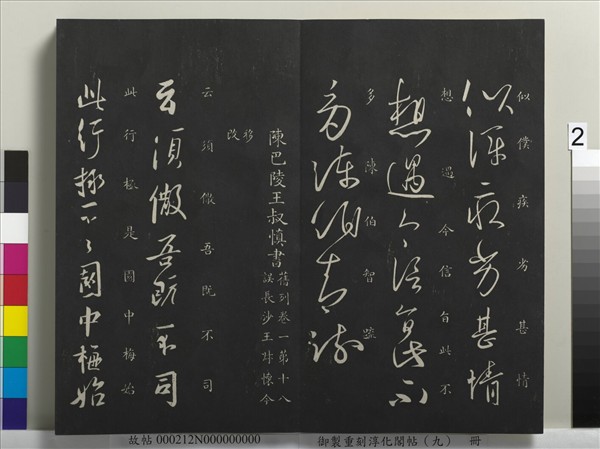 似僕疾劣甚情
似僕疾劣甚情
想遇今信旨此不
想遇今信旨此不
多陳伯智疏
多陳伯智疏
陳巴陵王叔慎書
舊列卷一第十八
誤長沙王叔懷今
移
改
云須儆吾既不司
云須儆吾既不司
此行極是園中梅始
此行極是園中梅始
2
故帖 000212N000000000
御製重刻淳化閣帖（九） 冊